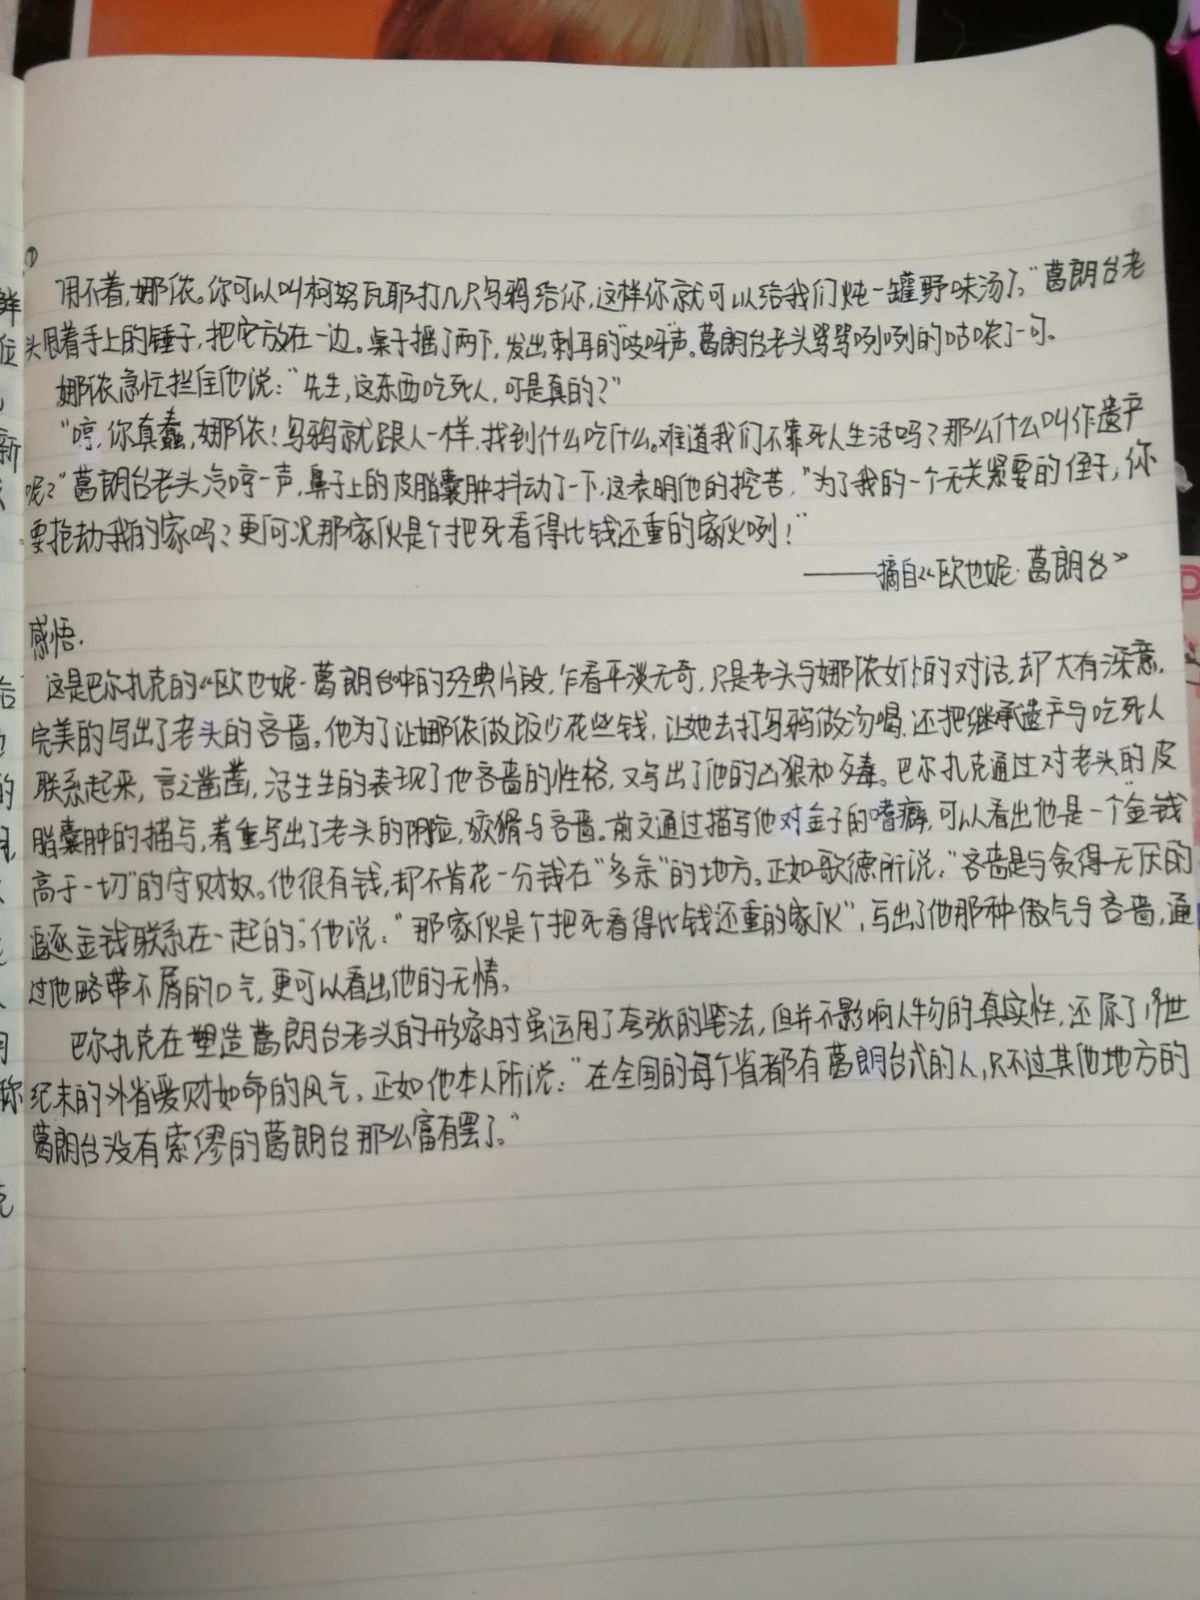 ①
用不着,娜侬。你可以叫柯努瓦耶打几只乌鸦给你,这样你就可以给我们炖一罐野味汤了。"葛朗台老
头甩着手上的锤子,把它放在一边。桌子摇了两下,发出刺耳的"吱呀"声。葛朗台老头骂骂咧咧的咕哝了一句。
娜侬急忙拦住他说:"先生,这东西吃死人,可是真的?"
"哼,你真蠢,娜侬!乌鸦就跟人一样,找到什么吃什么。难道我们不靠死人生活吗?那么什么叫作遗产
呢?"葛朗台老头冷哼一声,鼻子上的皮脂囊肿抖动了一下,这表明他的挖苦,"为了我的一个无关紧要的侄子,你
要抢劫我的家吗?更何况那家伙是个把死看得比钱还重的家伙咧!"
——摘自《欧也妮·葛朗台》
感悟.
这是巴尔扎克的《欧也妮·葛朗台》中的经典片段,乍看平淡无奇,只是老头与娜侬女仆的对话,却大有深意,
完美的写出了老头的吝啬。他为了让娜侬做饭少花些钱,让她去打乌鸦做汤喝,还把继承遗产与吃死人
联系起来,言之凿凿,活生生的表现了他吝啬的性格,又写出了他的凶狠和歹毒。巴尔扎克通过对老头的皮
脂囊肿的描写,着重写出了老头的阴险,狡猾与吝啬。前文通过描写他对金子的嗜癖,可以看出他是一个"金钱
高于一切"的守财奴。他很有钱,却不肯花一分钱在"多余"的地方。正如歌德所说,"吝啬是与贪得无厌的
追逐金钱联系在一起的。"他说:"那家伙是个把死看得比钱还重的家伙",写出了他那种傲气与吝啬,通
过他略带不屑的口气,更可以看出他的无情。
巴尔扎克在塑造葛朗台老头的形象时虽运用了夸张的笔法,但并不影响人物的真实性,还原了19世
纪末的外省爱财如命的风气。正如他本人所说:"在全国的每个省都有葛朗台式的人,只不过其他地方的
葛朗台没有索缪的葛朗台那么富有罢了。"